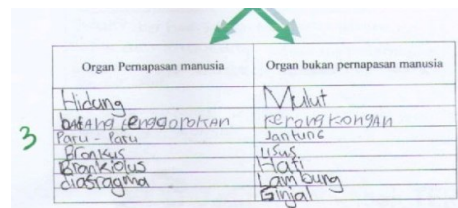 Organ Pernapasan manusia
Organ bukan pernapasan manusia
Hidung
Mulut
batang tenggorokan
kerongkongan
Paru - Paru
Jantung
Bronkus
usus
Bronkiolus
Hati
diafragma
Lambung
Ginjal
3